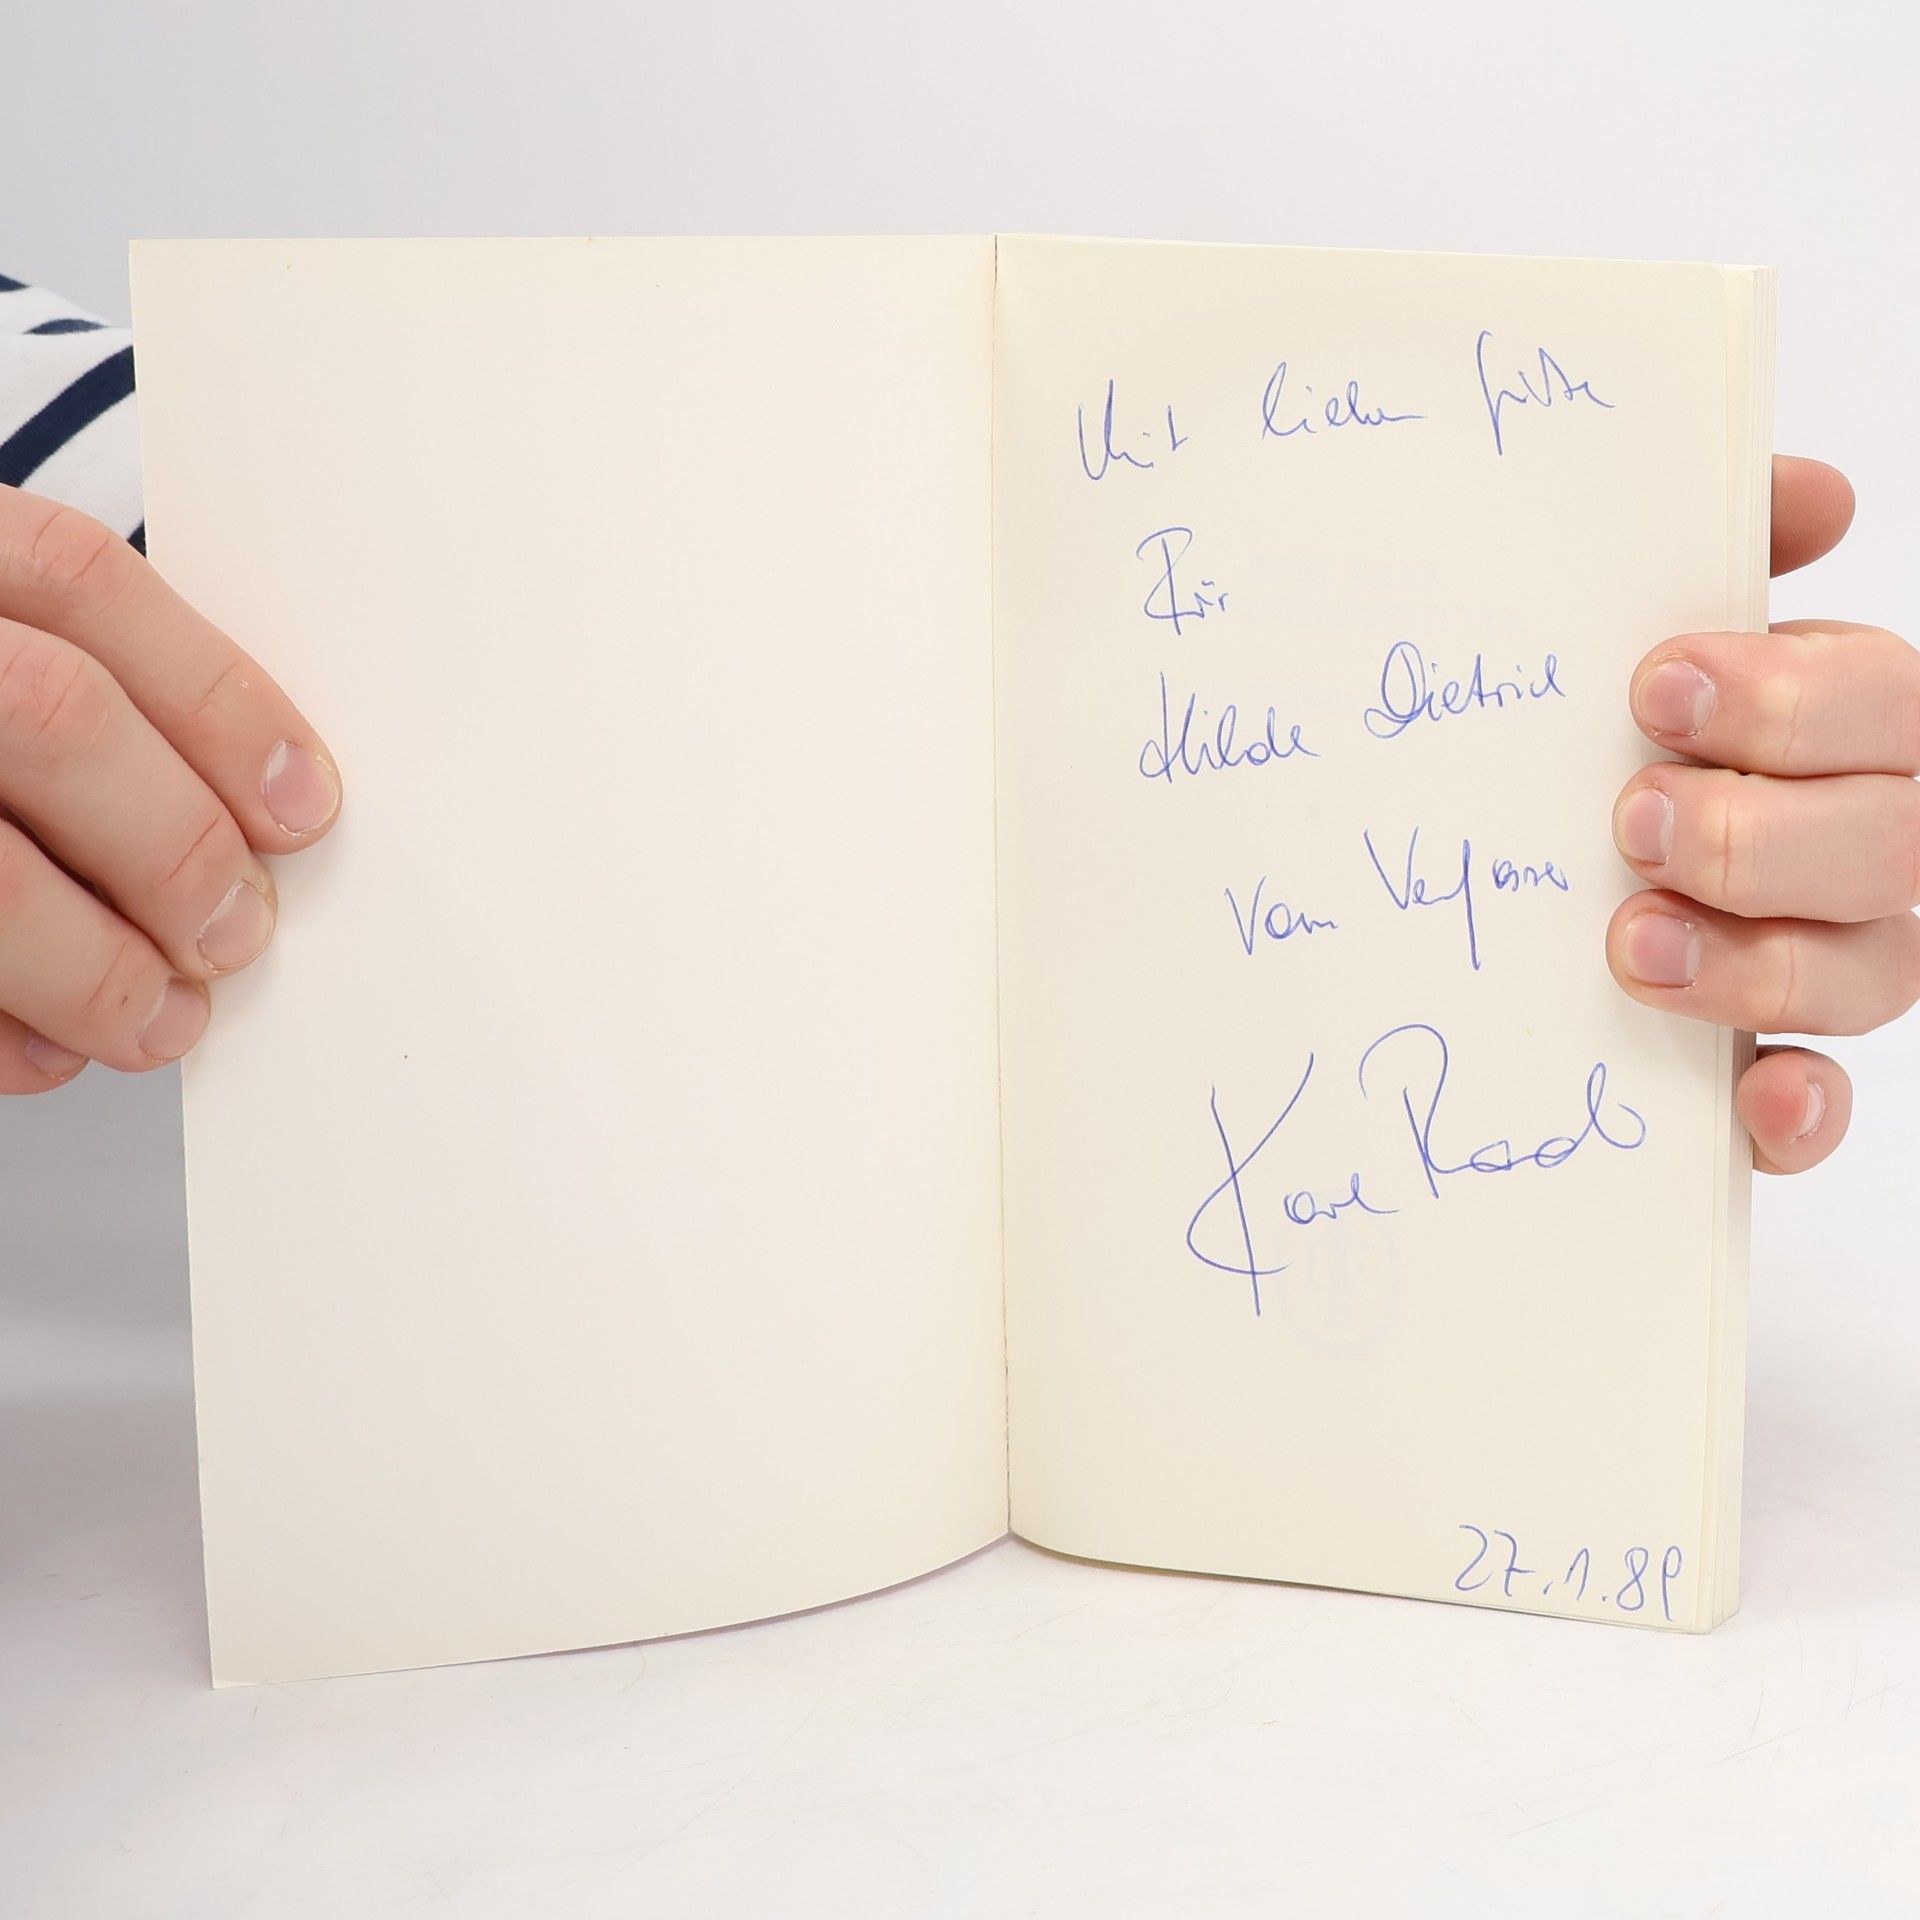 Mit lieben Grüßen
Für
Hilde Dietrich
vom Verfasser
Karl Raab
27.1.89